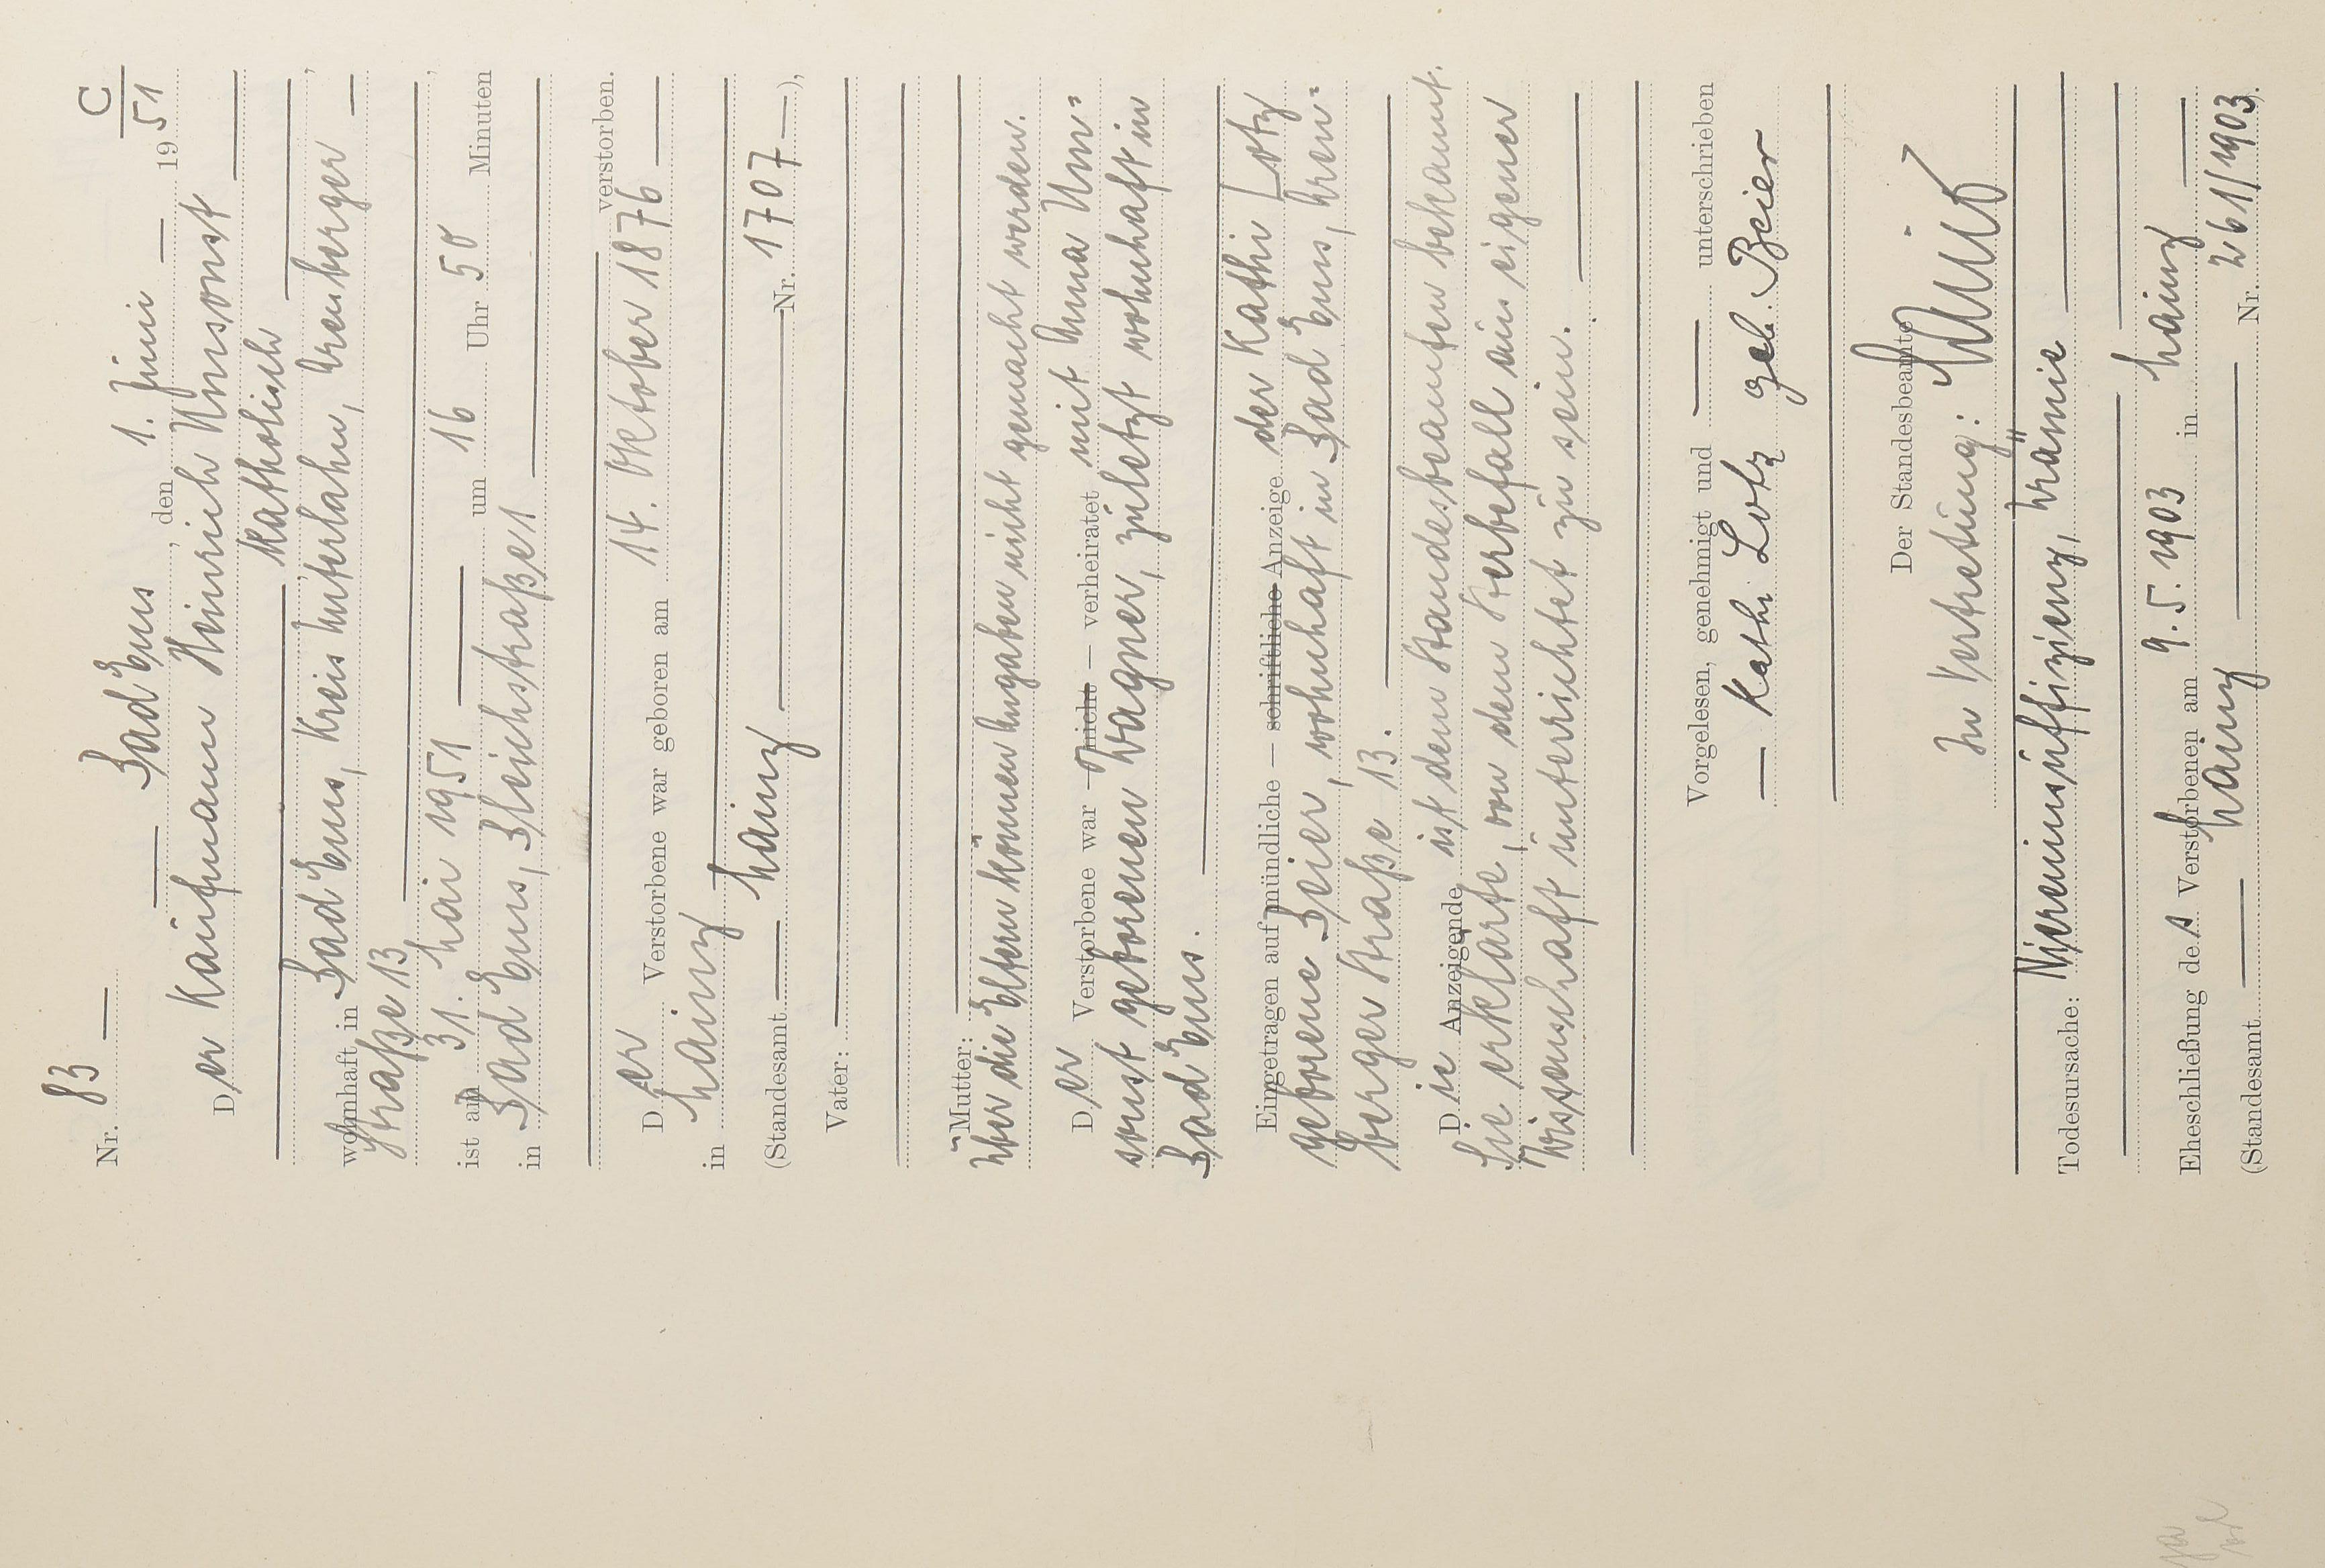 C
Nr. 83 —
— Bad Ems, den 1. Juni — 1951
Der Kaufmann Heinrich Umsonst
— katholisch —,
wohnhaft in Bad Ems, Kreis Unterlahn, Arenberger —
Straße 13 —,
ist am 31. Mai 1951 — um 16 Uhr 50 Minuten
in Bad Ems, Bleichstraße 1 —
— verstorben.
Der Verstorbene war geboren am 14. Oktober 1876 —
in Mainz —
(Standesamt — Mainz — Nr. 1707 —),
Vater: —
Mutter: —
Über die Eltern können Angaben nicht gemacht werden.
Der Verstorbene war — nicht — verheiratet mit Anna Um=
sonst geborenen Wagner, zuletzt wohnhaft in
Bad Ems. —
Eingetragen auf mündliche — schriftliche Anzeige der Kathi Lotz
geborene Beier, wohnhaft in Bad Ems, Aren=
berger Straße 13. —
Die Anzeigende ist dem Standesbeamten bekannt.
Sie erklärte, von dem Sterbefall aus eigener
Wissenschaft unterrichtet zu sein. —
Vorgelesen, genehmigt und — unterschrieben
— Kathi Lotz geb. Beier
Der Standesbeamte
In Vertretung:
Todesursache: Niereninsuffizienz, Urämie —
Eheschließung des Verstorbenen am 9.5.1903 in Mainz —
(Standesamt — Mainz — Nr. 261/1903).